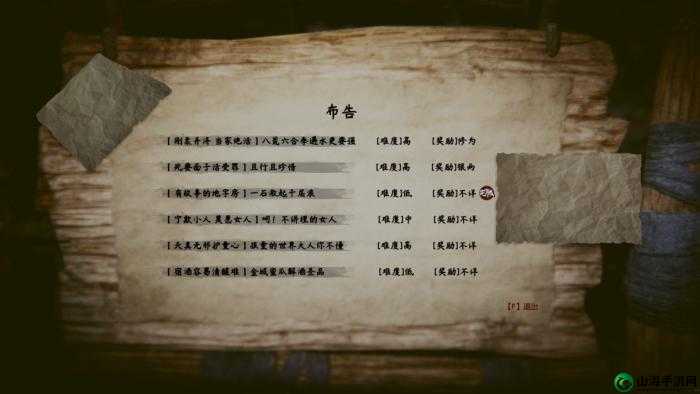 布告
【刚柔并济 当家绝活】八荒六合拳遇水更要强 [难度]高 [奖励]修为
【死要面子活受罪】且行且珍惜 [难度]高 [奖励]银两
【有故事的地字房】一石激起千层浪 [难度]低 [奖励]不详
【宁欺小人 莫惹女人】呵！不讲理的女人 [难度]中 [奖励]不详
【天真无邪护童心】孩童的世界大人你不懂 [难度]高 [奖励]不详
【宿酒容易清醒难】金城蜜瓜解酒圣品 [难度]低 [奖励]不详
【F】退出
山海手游网